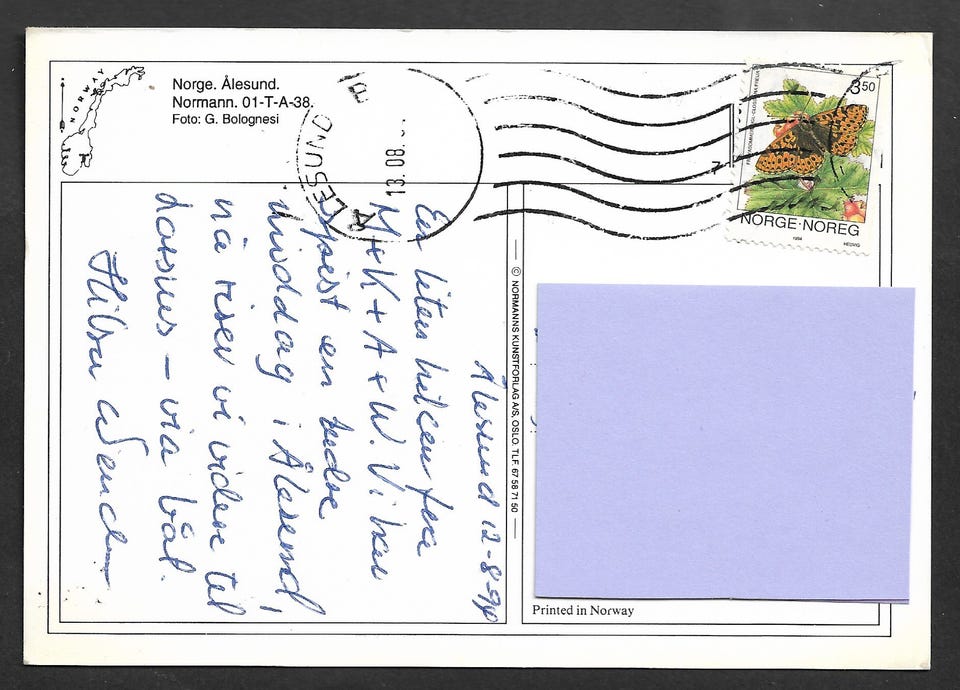 NORWAY
Norge. Ålesund.
Normann. 01-T-A-38.
Foto: G. Bolognesi
ÅLESUND
13.08.
3 50
NORGE·NOREG
1994
© NORMANNS KUNSTFORLAG A/S, OSLO. TLF. 67 58 71 50
Ålesund 12-8-
En liten hilsen fra
M+K+A+W. Vi har
spist en bedre
middag i Ålesund,
nå reiser vi videre til
- via båt.
Hilsen Wenche
Printed in Norway